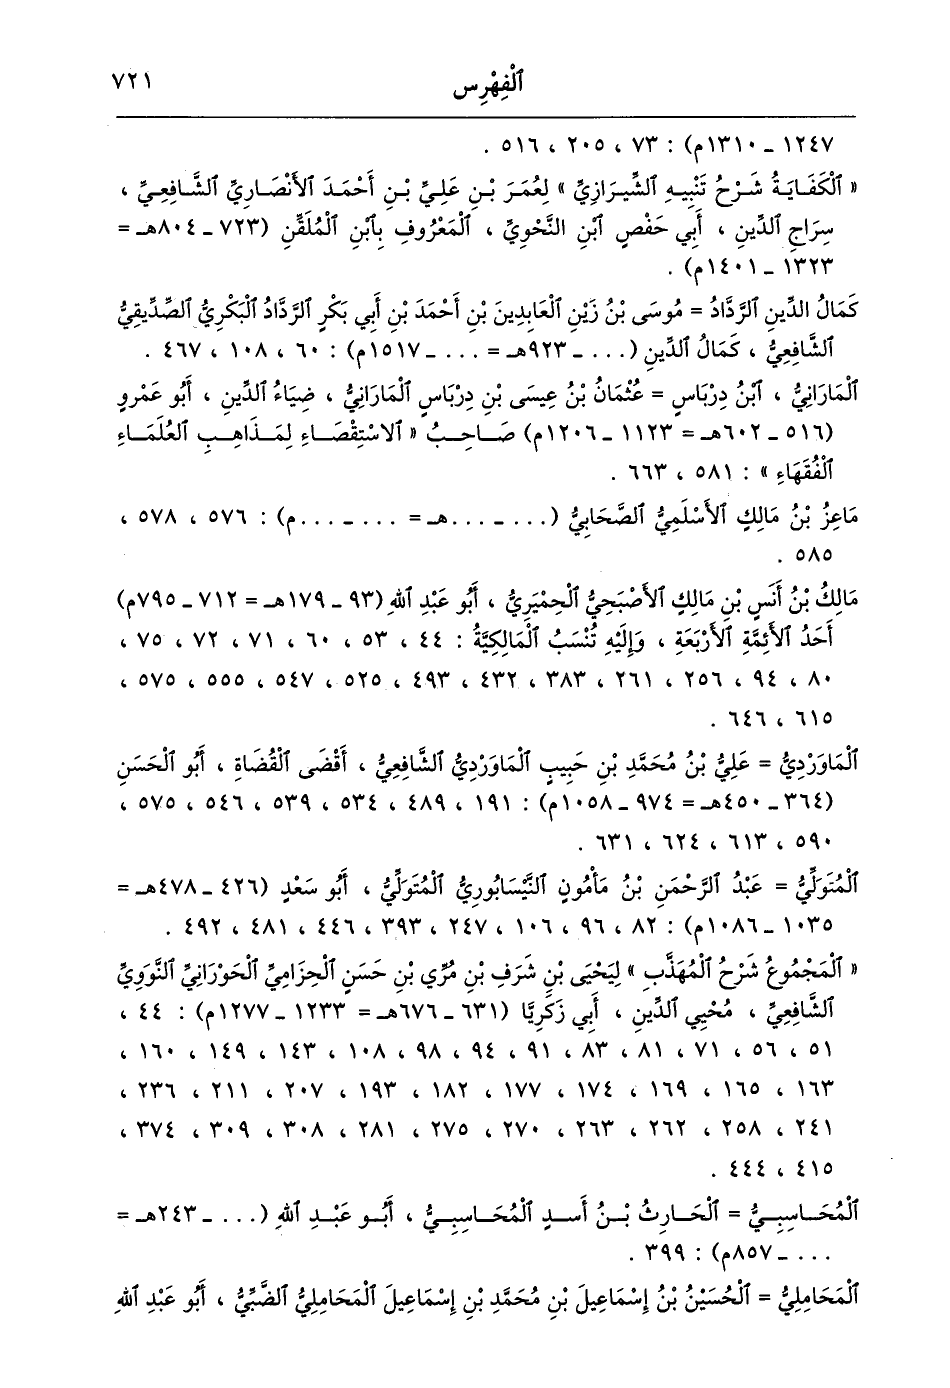 ٱلْفِهْرِس ٧٢١
١٢٤٧ ـ ١٣١٠م) : ٧٣ ، ٢٠٥ ، ٥١٦ .
« ٱلْكَفَايَةُ شَرْحُ تَنْبِيهِ ٱلشِّيرَازِيِّ » لِعُمَرَ بْنِ عَلِيِّ بْنِ أَحْمَدَ ٱلأَنْصَارِيِّ ٱلشَّافِعِيِّ ،
سِرَاجِ ٱلدِّينِ ، أَبِي حَفْصٍ ٱبْنِ ٱلنَّحْوِيِّ ، ٱلْمَعْرُوفِ بِٱبْنِ ٱلْمُلَقِّنِ (٧٢٣ ـ ٨٠٤هـ =
١٣٢٣ ـ ١٤٠١م) .
كَمَالُ الدِّينِ ٱلرَّدَّادُ = مُوسَى بْنُ زَيْنِ ٱلْعَابِدِينَ بْنِ أَحْمَدَ بْنِ أَبِي بَكْرٍ ٱلرَّدَّادُ ٱلْبَكْرِيُّ ٱلصِّدِّيقِيُّ
ٱلشَّافِعِيُّ ، كَمَالُ ٱلدِّينِ (... ـ ٩٢٣هـ = ... ـ ١٥١٧م) : ٦٠ ، ١٠٨ ، ٤٦٧ .
ٱلْمَارَانِيُّ ، ٱبْنُ دِرْبَاسٍ = عُثْمَانُ بْنُ عِيسَى بْنِ دِرْبَاسٍ ٱلْمَارَانِيُّ ، ضِيَاءُ ٱلدِّينِ ، أَبُو عَمْرٍو
(٥١٦ ـ ٦٠٢هـ = ١١٢٣ ـ ١٢٠٦م) صَاحِبُ « ٱلاسْتِقْصَاءِ لِمَذَاهِبِ ٱلْعُلَمَاءِ
ٱلْفُقَهَاءِ » : ٥٨١ ، ٦٦٣ .
مَاعِزُ بْنُ مَالِكٍ ٱلأَسْلَمِيُّ ٱلصَّحَابِيُّ (... ـ ...هـ = ... ـ ...م) : ٥٧٦ ، ٥٧٨ ،
٥٨٥ .
مَالِكُ بْنُ أَنَسِ بْنِ مَالِكٍ ٱلأَصْبَحِيُّ ٱلْحِمْيَرِيُّ ، أَبُو عَبْدِ ٱللهِ (٩٣ ـ ١٧٩هـ = ٧١٢ ـ ٧٩٥م)
أَحَدُ ٱلأَئِمَّةِ ٱلأَرْبَعَةِ ، وَإِلَيْهِ تُنْسَبُ ٱلْمَالِكِيَّةُ : ٤٤ ، ٥٣ ، ٦٠ ، ٧١ ، ٧٢ ، ٧٥ ،
٨٠ ، ٩٤ ، ٢٥٦ ، ٢٦١ ، ٣٨٣ ، ٤٣٢ ، ٤٩٣ ، ٥٢٥ ، ٥٤٧ ، ٥٥٥ ، ٥٧٥ ،
٦١٥ ، ٦٤٦ .
ٱلْمَاوَرْدِيُّ = عَلِيُّ بْنُ مُحَمَّدِ بْنِ حَبِيبٍ ٱلْمَاوَرْدِيُّ ٱلشَّافِعِيُّ ، أَقْضَى ٱلْقُضَاةِ ، أَبُو ٱلْحَسَنِ
(٣٦٤ ـ ٤٥٠هـ = ٩٧٤ ـ ١٠٥٨م) : ١٩١ ، ٤٨٩ ، ٥٣٤ ، ٥٣٩ ، ٥٤٦ ، ٥٧٥ ،
٥٩٠ ، ٦١٣ ، ٦٢٤ ، ٦٣١ .
ٱلْمُتَوَلِّيُّ = عَبْدُ ٱلرَّحْمَنِ بْنُ مَأْمُونٍ ٱلنَّيْسَابُورِيُّ ٱلْمُتَوَلِّيُّ ، أَبُو سَعْدٍ (٤٢٦ ـ ٤٧٨هـ =
١٠٣٥ ـ ١٠٨٦م) : ٨٢ ، ٩٦ ، ١٠٦ ، ٢٤٧ ، ٣٩٣ ، ٤٤٦ ، ٤٨١ ، ٤٩٢ .
« ٱلْمَجْمُوعُ شَرْحُ ٱلْمُهَذَّبِ » لِيَحْيَى بْنِ شَرَفِ بْنِ مُرِّي بْنِ حَسَنٍ ٱلْحِزَامِيِّ ٱلْحَوْرَانِيِّ ٱلنَّوَوِيِّ
ٱلشَّافِعِيِّ ، مُحْيِي ٱلدِّينِ ، أَبِي زَكَرِيَّا (٦٣١ ـ ٦٧٦هـ = ١٢٣٣ ـ ١٢٧٧م) : ٤٤ ،
٥١ ، ٥٦ ، ٧١ ، ٨١ ، ٨٣ ، ٩١ ، ٩٤ ، ٩٨ ، ١٠٨ ، ١٤٣ ، ١٤٩ ، ١٦٠ ،
١٦٣ ، ١٦٥ ، ١٦٩ ، ١٧٤ ، ١٧٧ ، ١٨٢ ، ١٩٣ ، ٢٠٧ ، ٢١١ ، ٢٣٦ ،
٢٤١ ، ٢٥٨ ، ٢٦٢ ، ٢٦٣ ، ٢٧٠ ، ٢٧٥ ، ٢٨١ ، ٣٠٨ ، ٣٠٩ ، ٣٧٤ ،
٤١٥ ، ٤٤٤ .
ٱلْمُحَاسِبِيُّ = ٱلْحَارِثُ بْنُ أَسَدٍ ٱلْمُحَاسِبِيُّ ، أَبُو عَبْدِ ٱللهِ (... ـ ٢٤٣هـ =
... ـ ٨٥٧م) : ٣٩٩ .
ٱلْمَحَامِلِيُّ = ٱلْحُسَيْنُ بْنُ إِسْمَاعِيلَ بْنِ مُحَمَّدِ بْنِ إِسْمَاعِيلَ ٱلْمَحَامِلِيُّ ٱلضَّبِّيُّ ، أَبُو عَبْدِ ٱللهِ